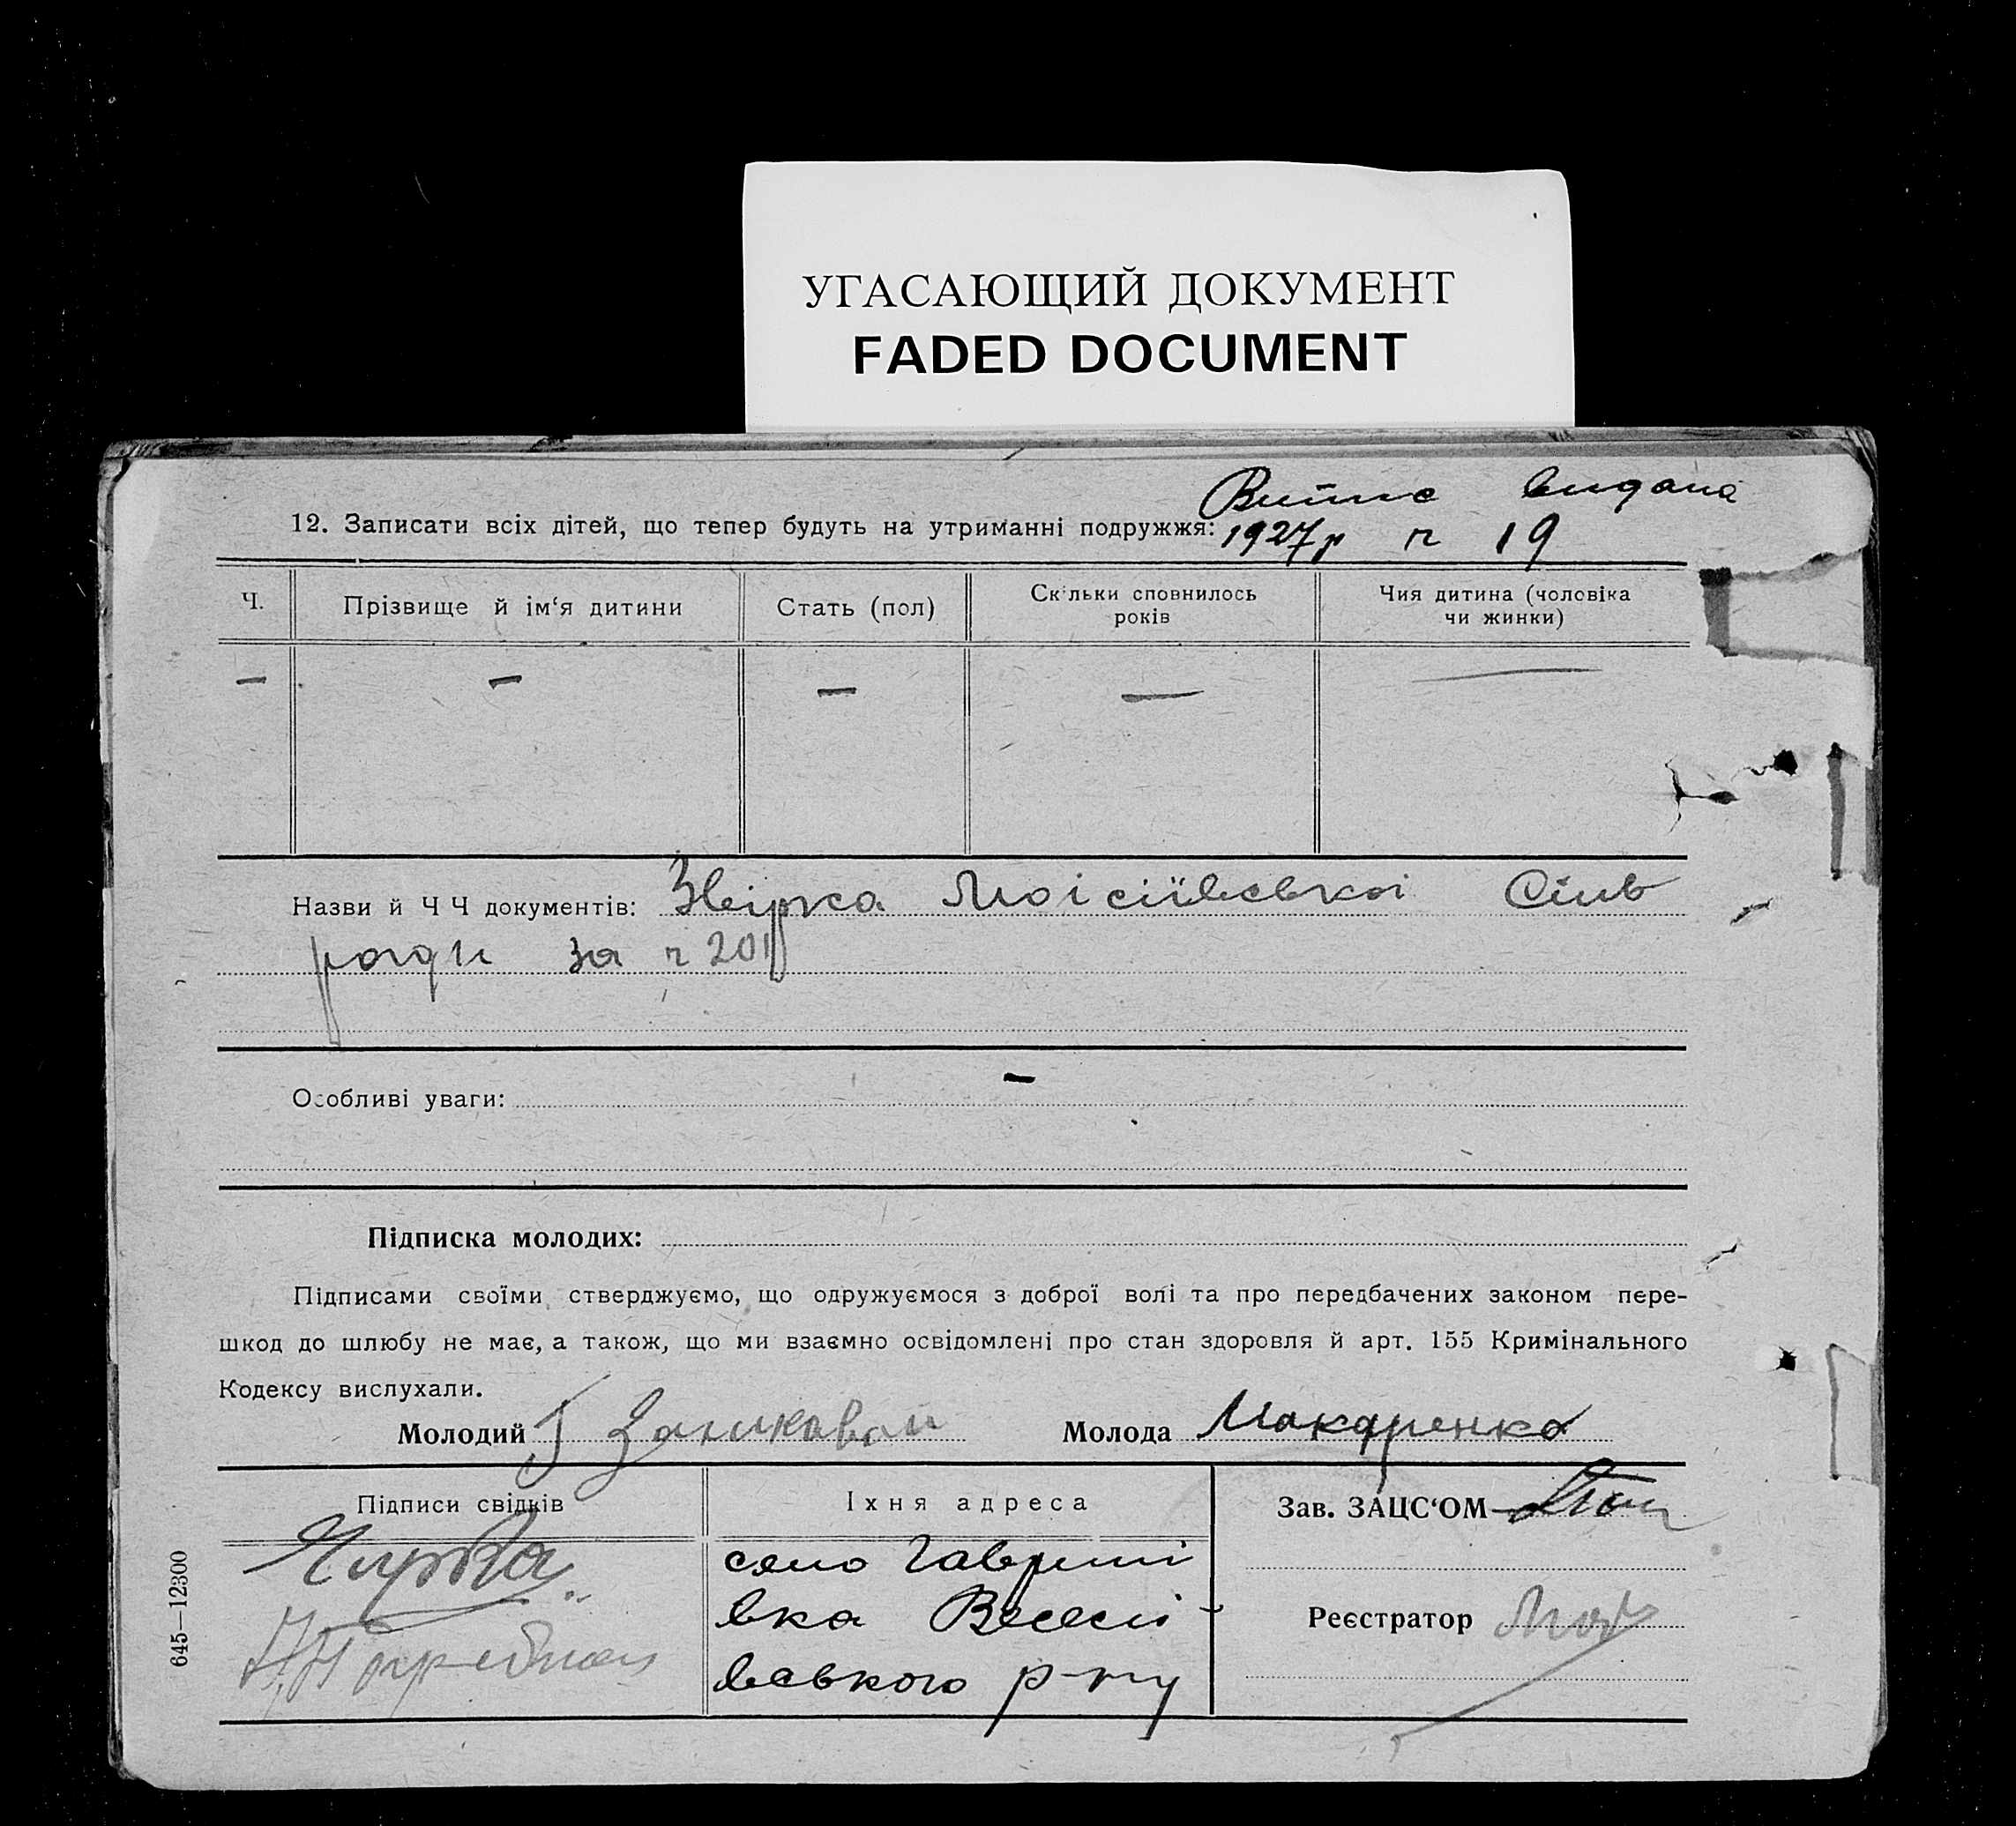 УГАСАЮЩИЙ ДОКУМЕНТ
FADED DOCUMENT
Випис видана
12. Записати всіх дітей, що тепер будуть на утриманні подружжя: 1927р ч 19
Ч. Прізвище й ім‘я дитини Стать (пол) Скільки сповнилось років Чия дитина (чоловіка чи жинки)
— — — — —
Назви й Ч Ч документів: Звірка Моісіївської Сіль
ради за ч 201
Особливі уваги: —
Підписка молодих:
Підписами своїми стверджуємо, що одружуємося з доброї волі та про передбачених законом пере-
шкод до шлюбу не має, а також, що ми взаємно освідомлені про стан здоровля й арт. 155 Кримінального
Кодексу вислухали.
Молодий Молода Макаренко
Підписи свідків Їхня адреса Зав. ЗАЦС‘ОМ
село Гаврилі
вка Веселі-
Реєстратор
вського р-ну
645—12300